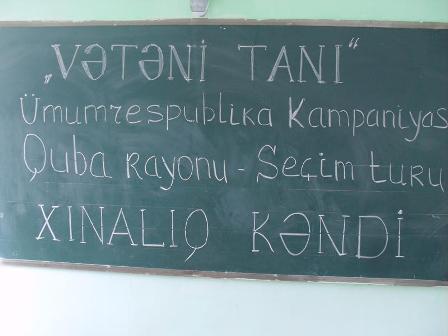 „VƏTƏNİ TANI“
Ümumrespublika Kampaniyas
Quba rayonu - Seçim turu
XINALIQ KƏNDİ